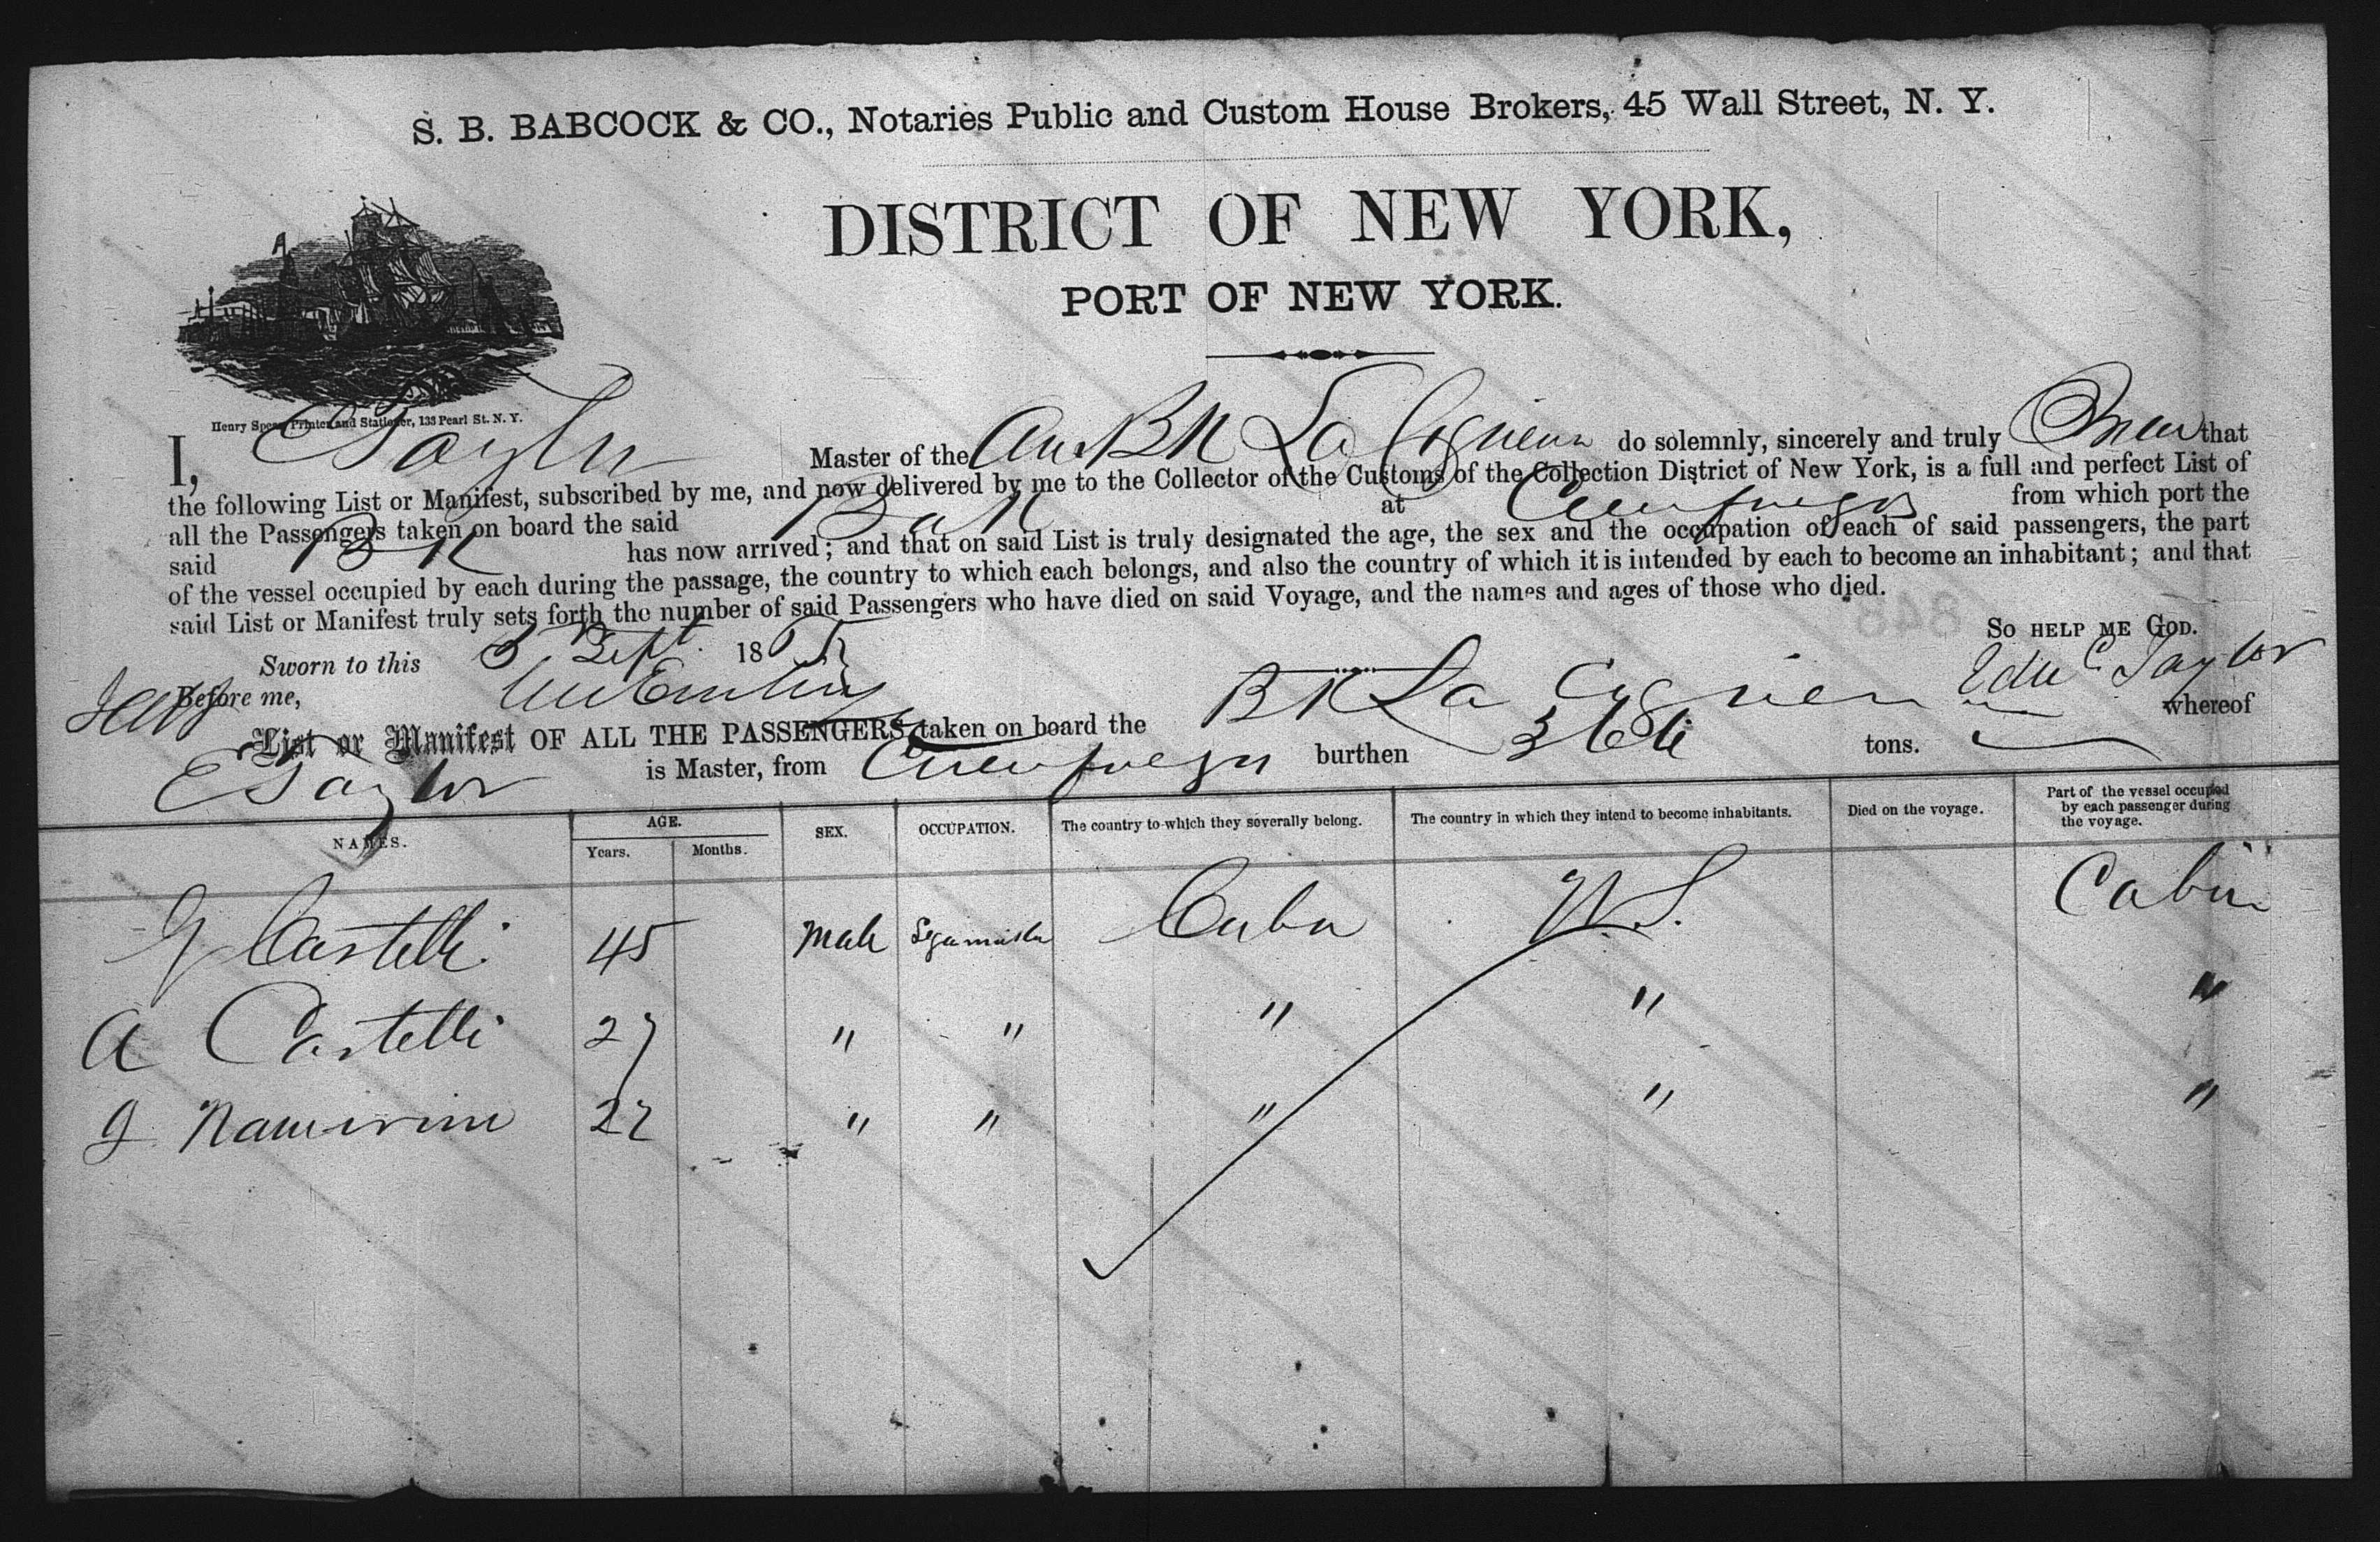 S. B. BABCOCK & CO., Notaries Public and Custom House Brokers, 45 Wall Street, N. Y.
DISTRICT OF NEW YORK,
PORT OF NEW YORK.
Henry Spear, Printer and Stationer, 133 Pearl St. N. Y.
I, E Taylor Master of the Am Bk La Cigueña do solemnly, sincerely and truly Swear that
the following List or Manifest, subscribed by me, and now delivered by me to the Collector of the Customs of the Collection District of New York, is a full and perfect List of
all the Passengers taken on board the said Bark at Cienfuegos from which port the
said Bk has now arrived; and that on said List is truly designated the age, the sex and the occupation of each of said passengers, the part
of the vessel occupied by each during the passage, the country to which each belongs, and also the country of which it is intended by each to become an inhabitant; and that
said List or Manifest truly sets forth the number of said Passengers who have died on said Voyage, and the names and ages of those who died.
So HELP ME GOD.
Sworn to this 5 Sept. 186
Before me, Edw C Taylor
List or Manifest OF ALL THE PASSENGERS taken on board the Bk La Cigueña whereof
E Taylor is Master, from Cienfuegos burthen tons.
NAMES. AGE. Years. Months. SEX. OCCUPATION. The country to which they severally belong. The country in which they intend to become inhabitants. Died on the voyage. Part of the vessel occupied by each passenger during the voyage.
G Castelli 45 Male Cuba U.S. Cabin
A Castelli 27 " " " " "
J 27 " " " " "